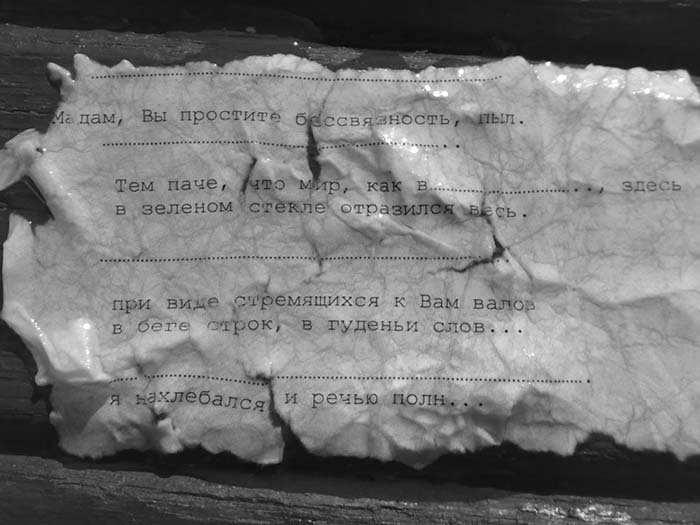 Мадам, Вы простите бессвязность, пыл.
Тем паче, что мир, как в................................, здесь
в зеленом стекле отразился весь.
при виде стремящихся к Вам валов
в беге строк, в гуденьи слов...
я нахлебался и речью полн...